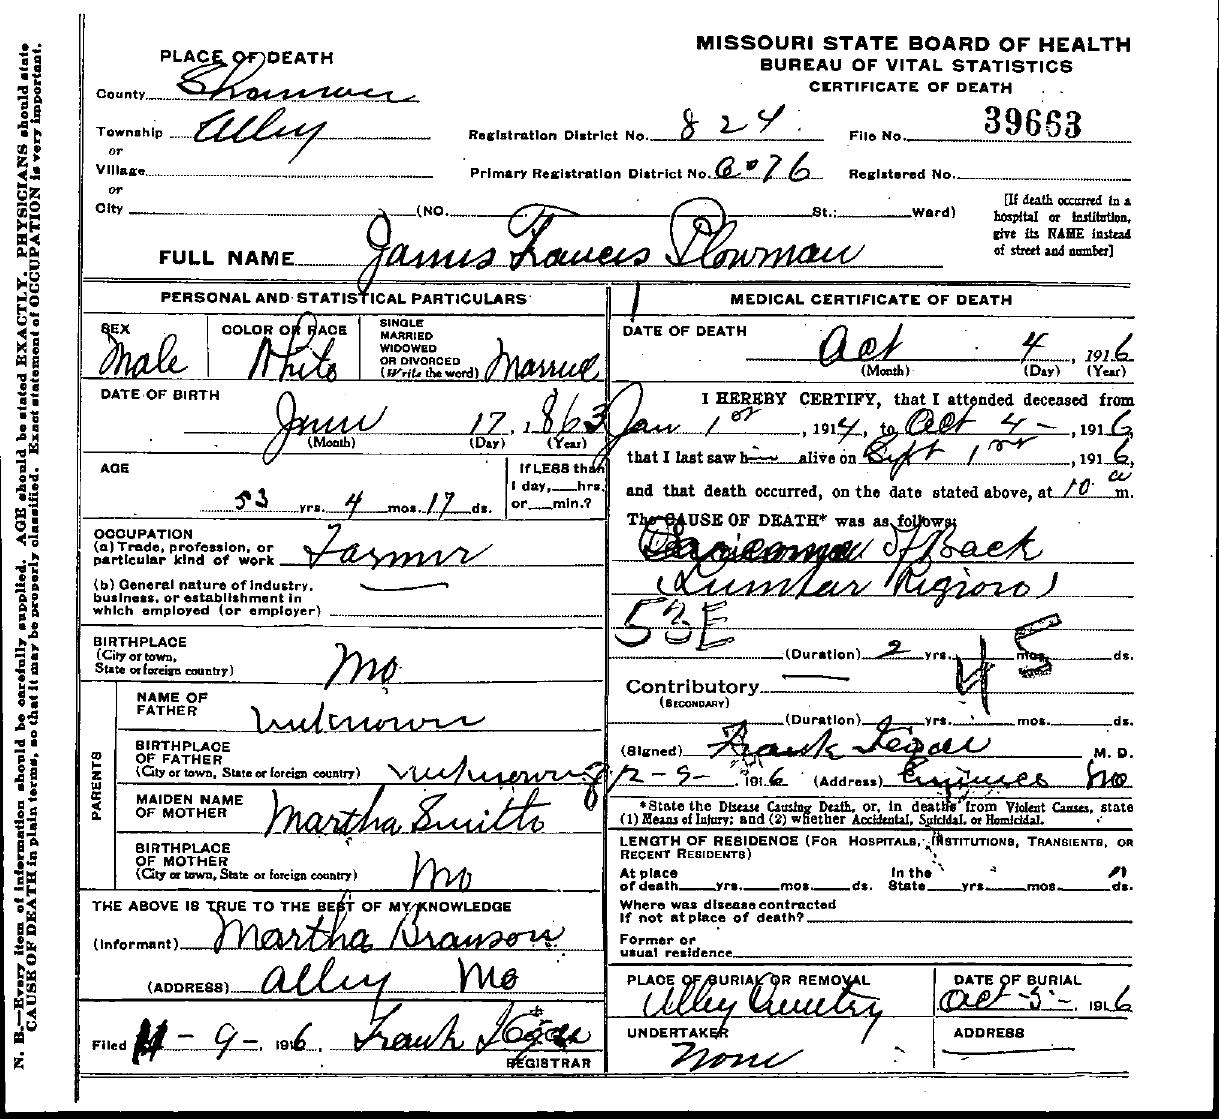 N. B.—Every item of information should be carefully supplied. AGE should be stated EXACTLY. PHYSICIANS should state
CAUSE OF DEATH in plain terms, so that it may be properly classified. Exact statement of OCCUPATION is very important.
MISSOURI STATE BOARD OF HEALTH
BUREAU OF VITAL STATISTICS
CERTIFICATE OF DEATH
PLACE OF DEATH
County Shannon
Township Alley
or
Village
or
City (NO. St.; Ward)
Registration District No. 824.
File No. 39663
Primary Registration District No. 6076
Registered No.
[If death occurred in a
hospital or institution,
give its NAME instead
of street and number]
FULL NAME James Frances Plowman
PERSONAL AND STATISTICAL PARTICULARS
SEX
Male
COLOR OR RACE
White
SINGLE
MARRIED
WIDOWED
OR DIVORCED
(Write the word) Married
DATE OF BIRTH
June 17, 1863
(Month) (Day) (Year)
AGE
53 yrs. 4 mos. 17 ds.
If LESS than
1 day, hrs.
or min.?
OCCUPATION
(a) Trade, profession, or
particular kind of work Farmer
(b) General nature of industry,
business, or establishment in
which employed (or employer)
BIRTHPLACE
(City or town,
State or foreign country) Mo
PARENTS
NAME OF
FATHER unknown
BIRTHPLACE
OF FATHER
(City or town, State or foreign country) unknown
MAIDEN NAME
OF MOTHER Martha Smith
BIRTHPLACE
OF MOTHER
(City or town, State or foreign country) Mo
THE ABOVE IS TRUE TO THE BEST OF MY KNOWLEDGE
(Informant) Martha Branson
(ADDRESS) Alley Mo
Filed 11-9-, 1916, Frank
REGISTRAR
MEDICAL CERTIFICATE OF DEATH
DATE OF DEATH
Oct 4, 1916
(Month) (Day) (Year)
I HEREBY CERTIFY, that I attended deceased from
Jan 1st, 1914, to Oct 4-, 1916,
that I last saw him alive on Sept 1st, 1916,
and that death occurred, on the date stated above, at 10 a m.
The CAUSE OF DEATH* was as follows:
of Back
(Lumbar Region)
53E
45
(Duration) 2 yrs. mos. ds.
Contributory
(SECONDARY)
(Duration) yrs. mos. ds.
(Signed) Frank M. D.
12-9-, 1916 (Address) Eminence Mo
*State the Disease Causing Death, or, in deaths from Violent Causes, state
(1) Means of Injury; and (2) whether Accidental, Suicidal, or Homicidal.
LENGTH OF RESIDENCE (FOR HOSPITALS, INSTITUTIONS, TRANSIENTS, OR
RECENT RESIDENTS)
At place
of death yrs. mos. ds.
In the
State yrs. mos. ds.
Where was disease contracted
if not at place of death?
Former or
usual residence
PLACE OF BURIAL OR REMOVAL
Alley Cemetry
DATE OF BURIAL
Oct-5-, 1916
UNDERTAKER
None
ADDRESS